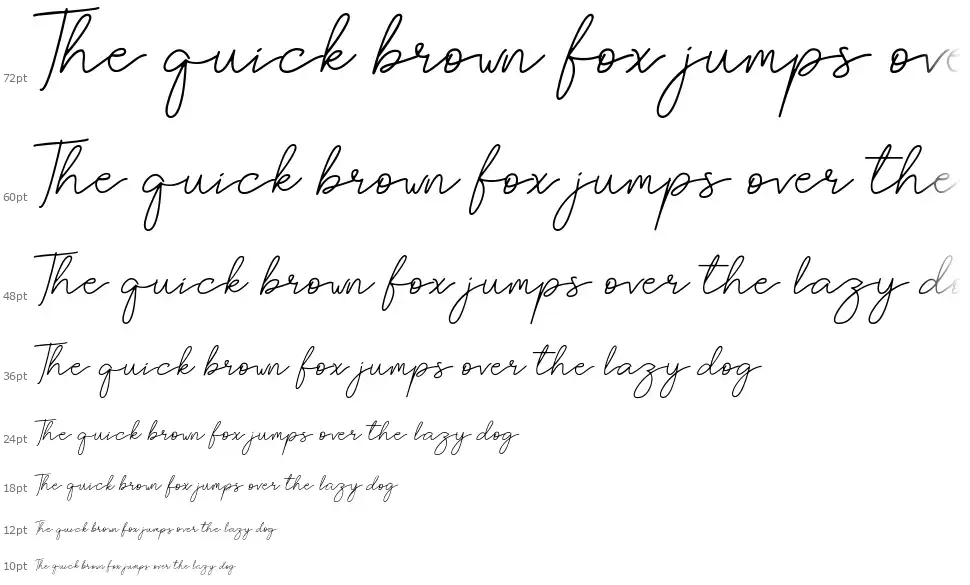 72pt The quick brown fox jumps ove
60pt The quick brown fox jumps over the
48pt The quick brown fox jumps over the lazy do
36pt The quick brown fox jumps over the lazy dog
24pt The quick brown fox jumps over the lazy dog
18pt The quick brown fox jumps over the lazy dog
12pt The quick brown fox jumps over the lazy dog
10pt The quick brown fox jumps over the lazy dog